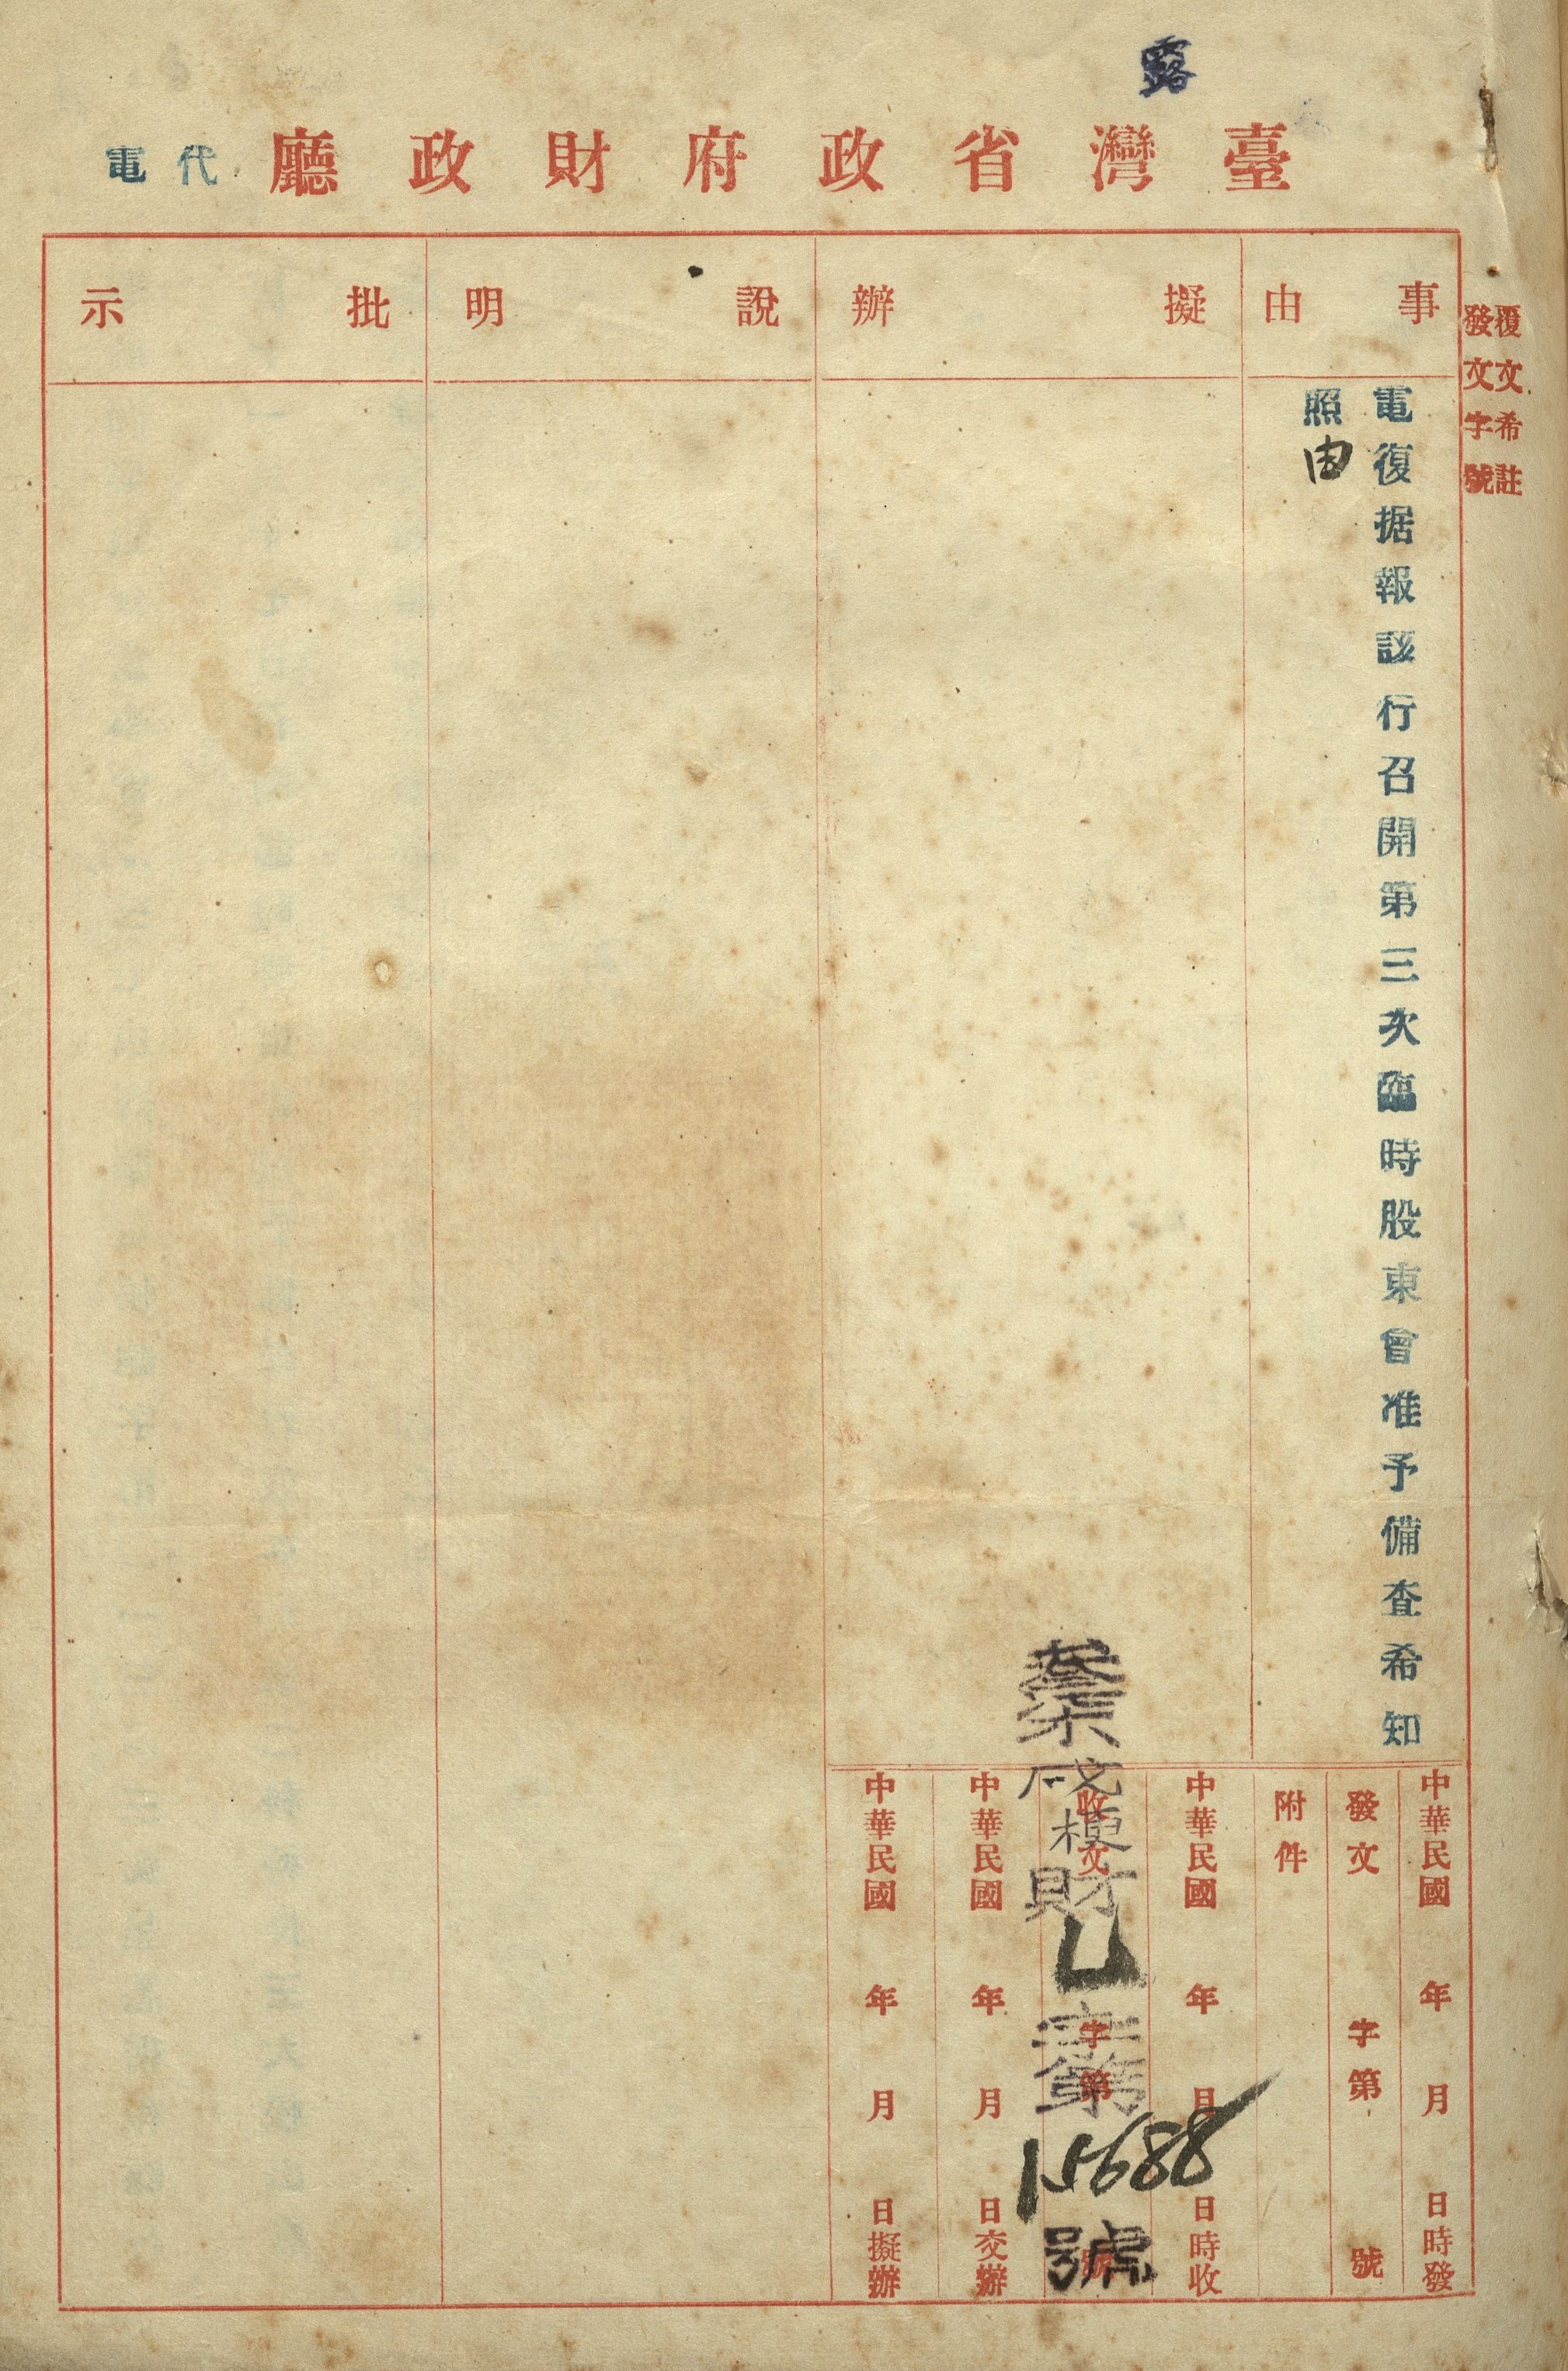 露
臺灣省政府財政廳代電
覆文希註
發文字號
事由
電復据報該行召開第三次臨時股東會准予備查希知
照由
擬辦
說明
批示
中華民國 年 月 日 時發
發文 字第 號
附件
中華民國 年 月 日 時收
收文 字第 號
梗財 字第15688號
中華民國 年 月 日交辦
中華民國 年 月 日擬辦